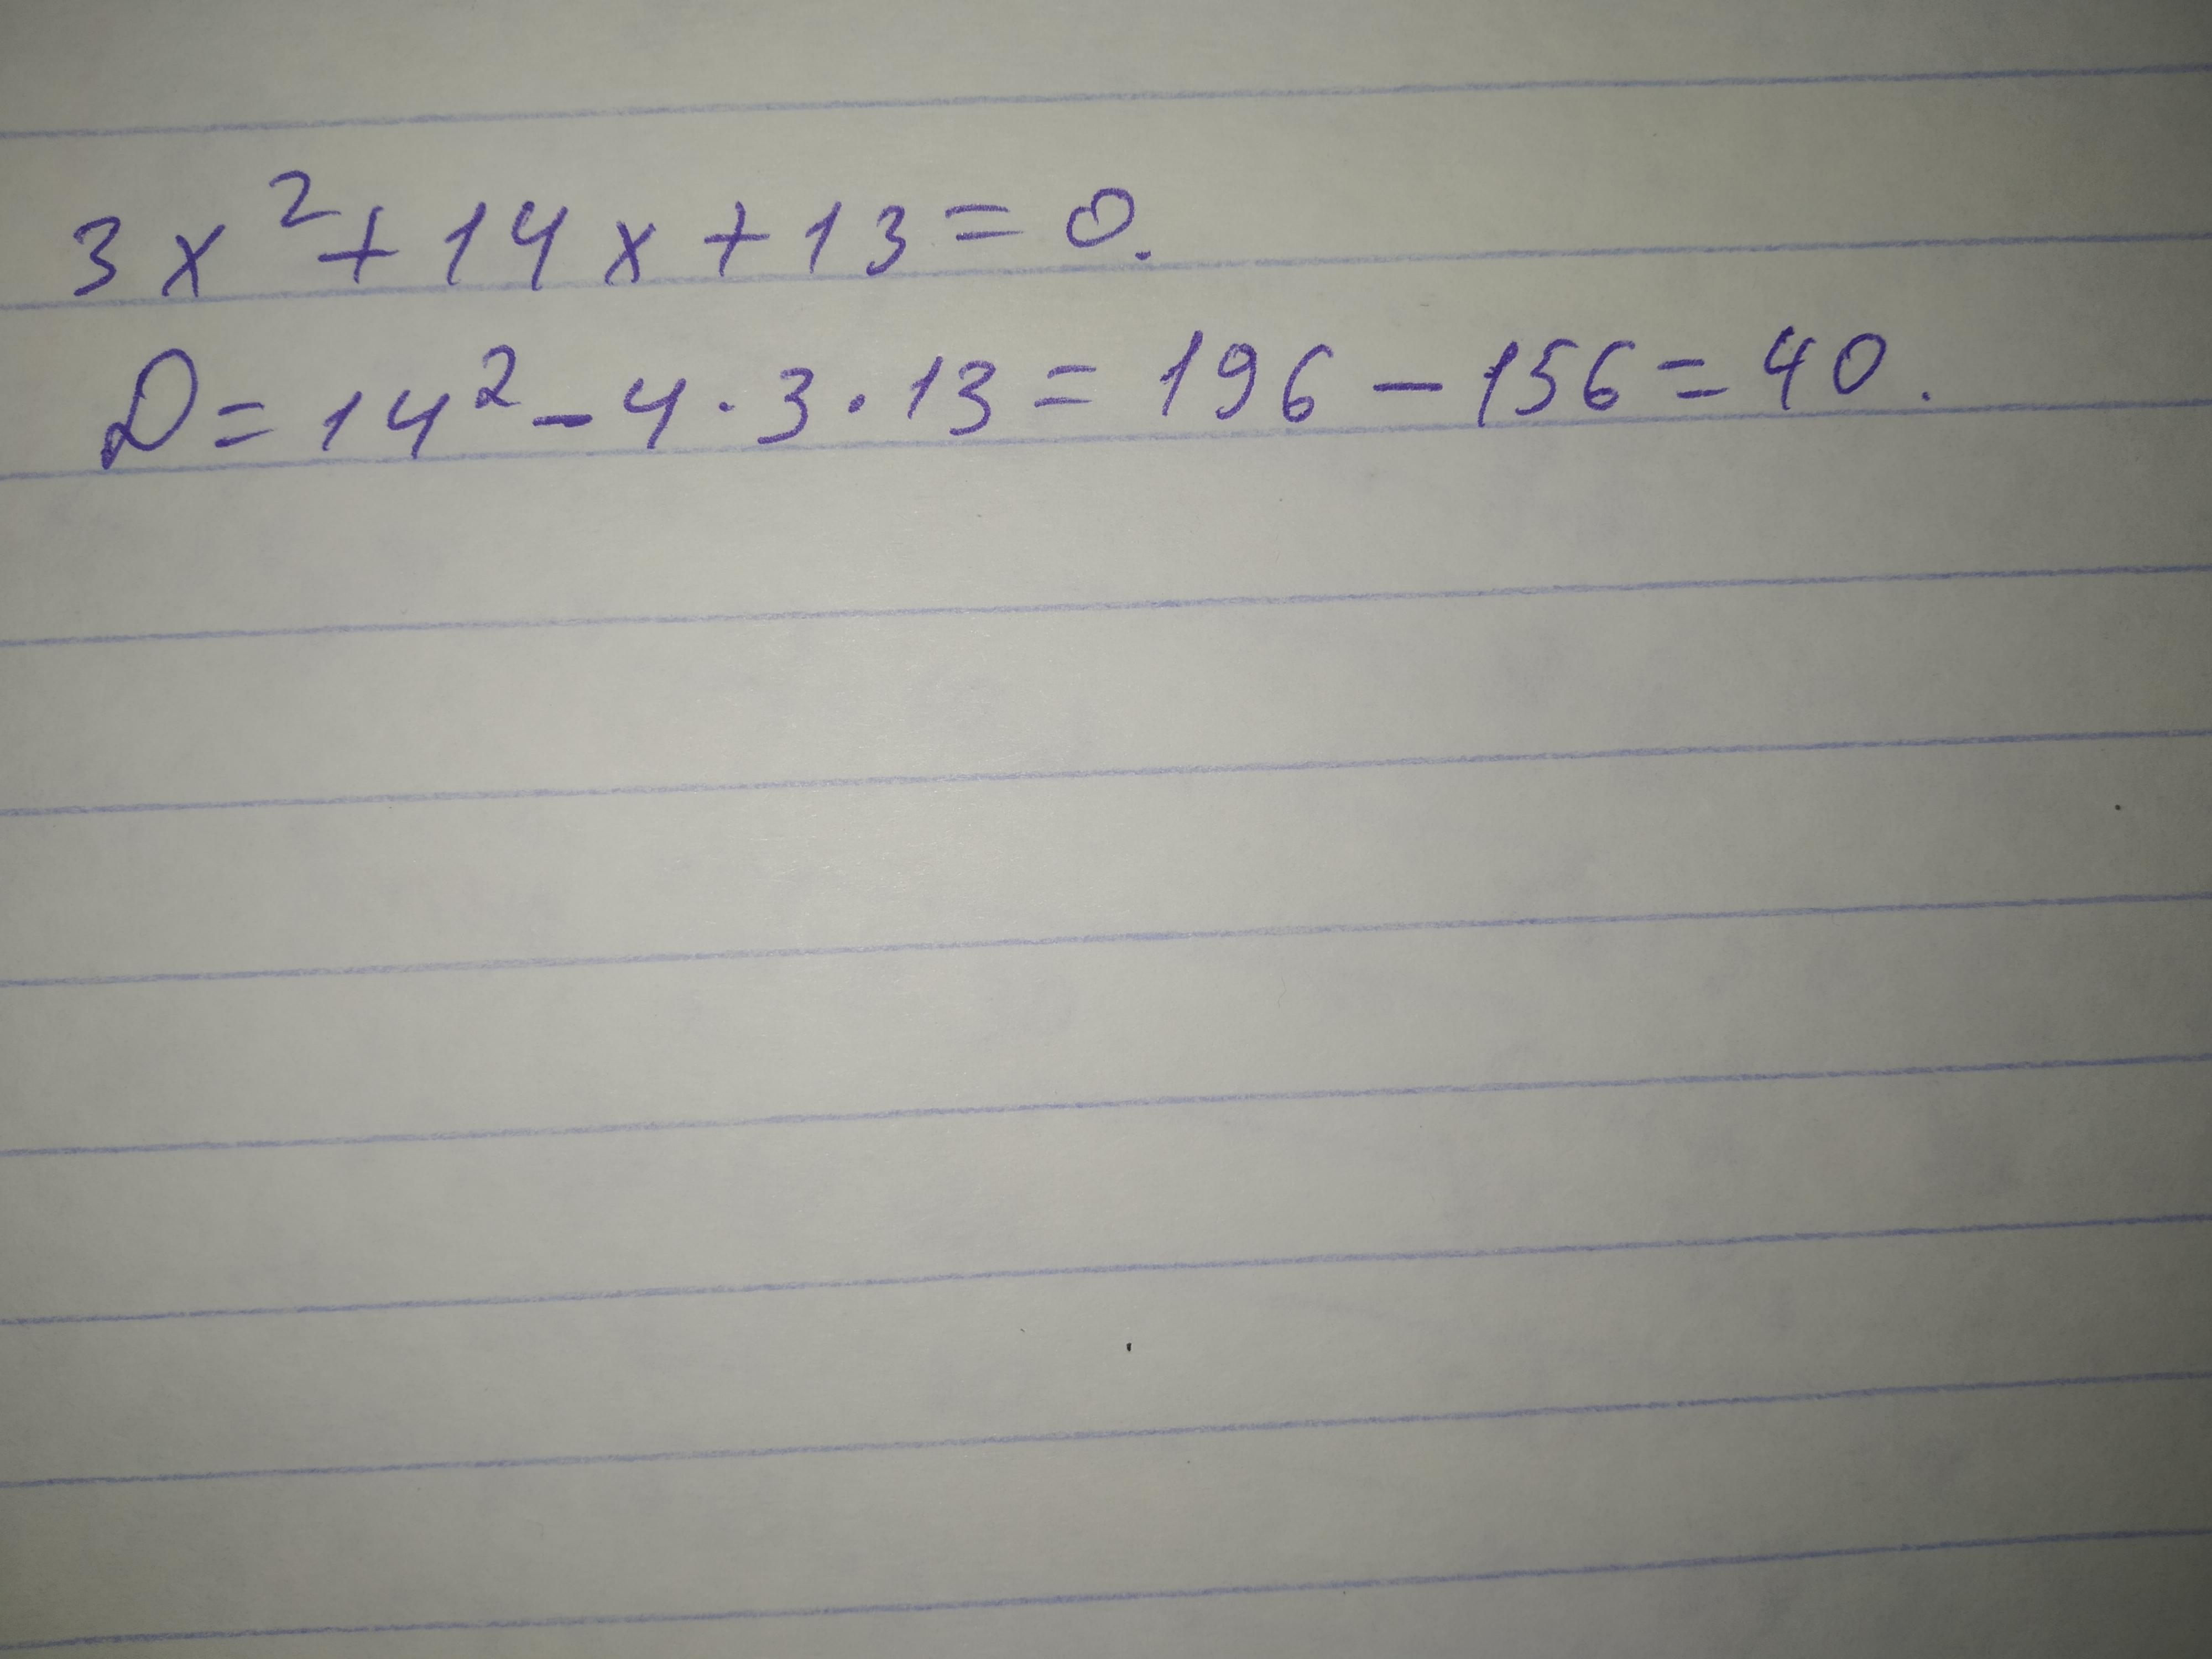 3x² + 14x + 13 = 0.
D = 14² - 4 · 3 · 13 = 196 - 156 = 40.